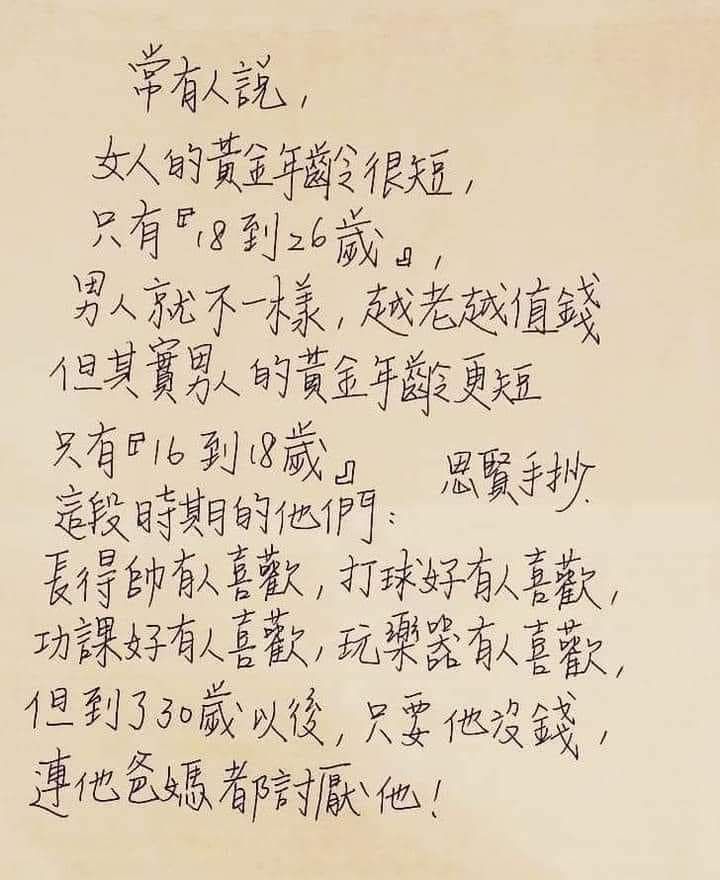 常有人說,
女人的黃金年齡很短,
只有『18到26歲』,
男人就不一樣,越老越值錢
但其實男人的黃金年齡更短
只有『16到18歲』
思賢手抄
這段時期的他們:
長得帥有人喜歡,打球好有人喜歡,
功課好有人喜歡,玩樂器有人喜歡,
但到了30歲以後,只要他沒錢,
連他爸媽都討厭他!